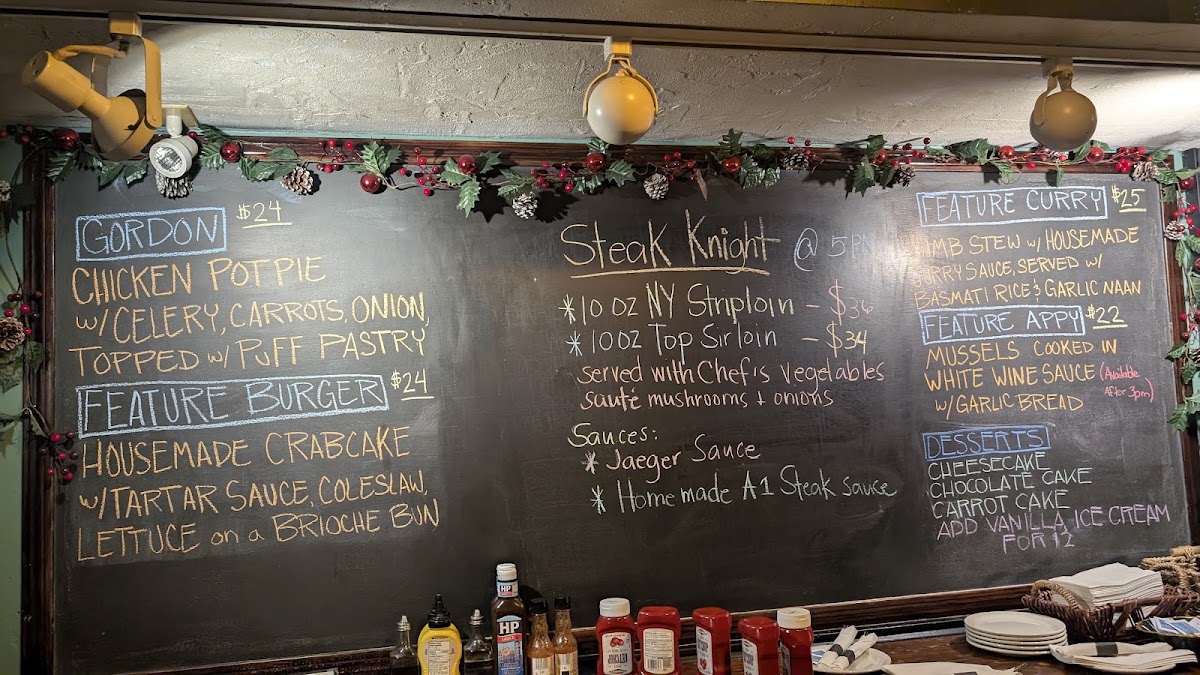 GORDON $24
CHICKEN POTPIE
w/CELERY, CARROTS, ONION,
TOPPED w/ PUFF PASTRY
FEATURE BURGER $24
HOUSEMADE CRABCAKE
w/TARTAR SAUCE, COLESLAW,
LETTUCE on a BRIOCHE BUN
Steak Knight @ 5PM
*10 oz NY Striploin - $36
*10oz Top Sirloin - $34
served with Chef's vegetables
sauté mushrooms + onions
Sauces:
* Jaeger Sauce
* Homemade A1 Steak sauce
FEATURE CURRY $25
LAMB STEW w/ HOUSEMADE
CURRY SAUCE, SERVED w/
BASMATI RICE & GARLIC NAAN
FEATURE APPY $22
MUSSELS COOKED IN
WHITE WINE SAUCE (Available
After 3pm)
w/GARLIC BREAD
DESSERTS
CHEESECAKE
CHOCOLATE CAKE
CARROT CAKE
ADD VANILLA ICE CREAM
FOR $2
HP